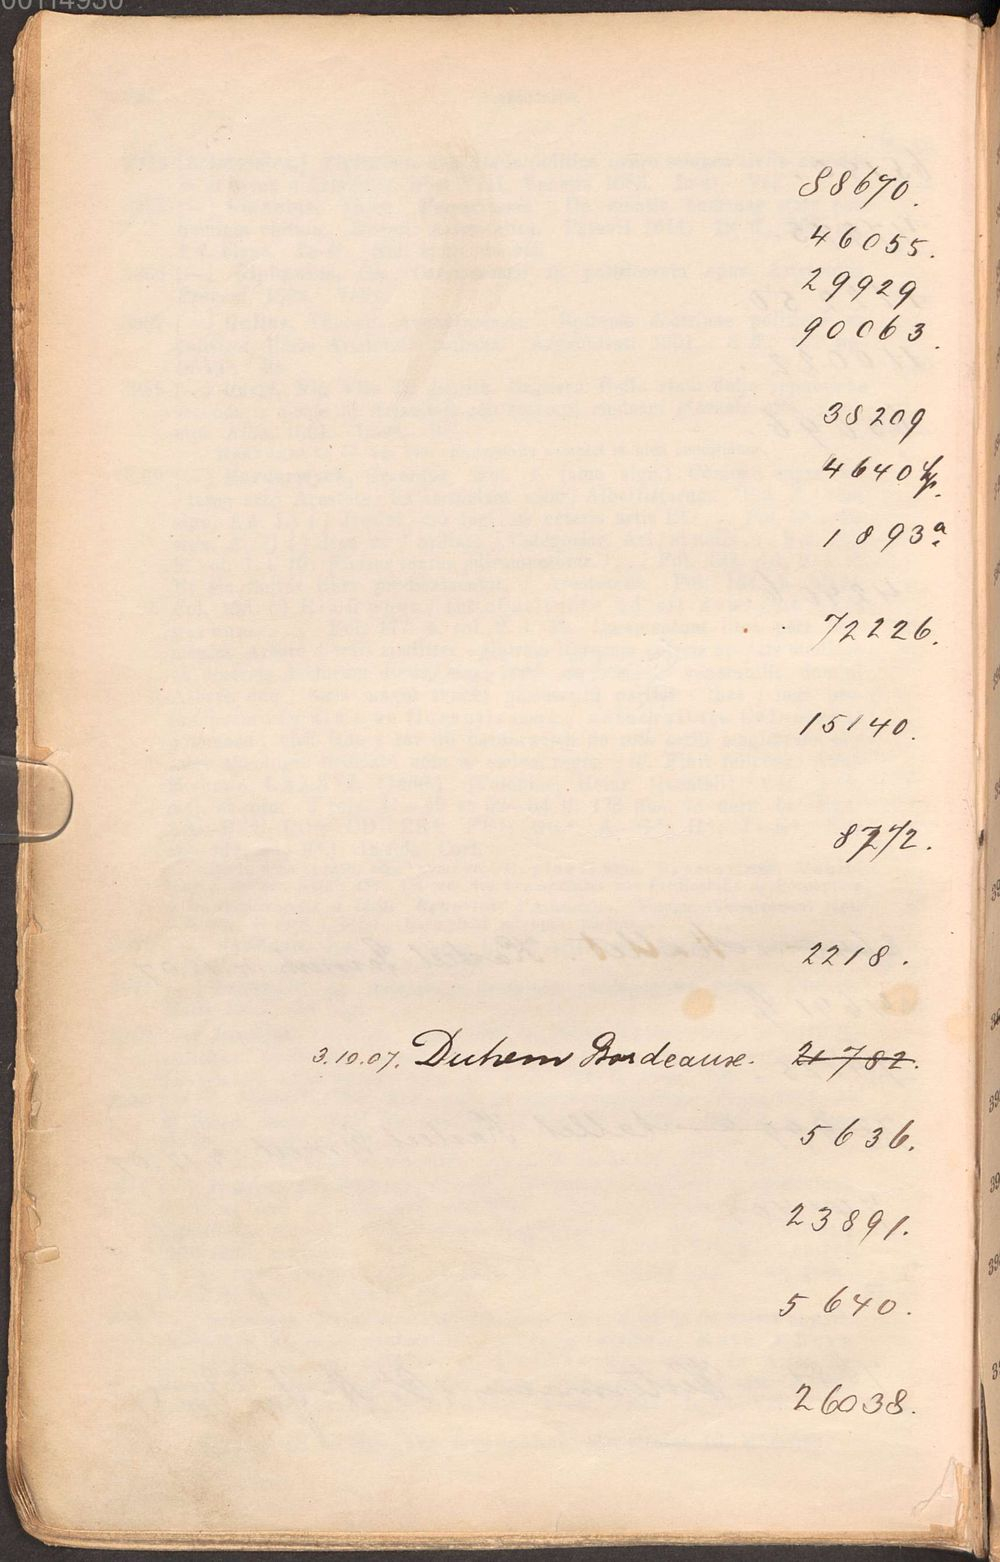 88670.
46055.
29929
90063.
38209
4640
1893a
72226.
15140.
8272.
2218.
3.10.07. Duhem Bordeaux. 21782.
5636.
23891.
5640.
26038.